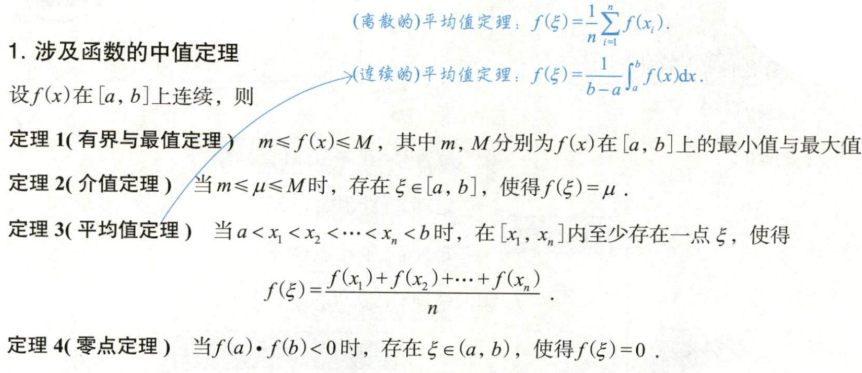 (离散的)平均值定理：f(ξ)=\frac{1}{n}\sum_{i=1}^{n} f(x_i).
1. 涉及函数的中值定理
(连续的)平均值定理：f(ξ)=\frac{1}{b-a}\int_a^b f(x)dx.
设f(x)在[a, b]上连续，则
定理 1(有界与最值定理) m≤f(x)≤M，其中m, M分别为f(x)在[a, b]上的最小值与最大值
定理 2(介值定理) 当m≤μ≤M时，存在ξ∈[a, b]，使得f(ξ)=μ.
定理 3(平均值定理) 当a<x_1<x_2<⋯<x_n<b时，在[x_1, x_n]内至少存在一点ξ，使得
f(ξ)=\frac{f(x_1)+f(x_2)+⋯+f(x_n)}{n}.
定理 4(零点定理) 当f(a)•f(b)<0时，存在ξ∈(a, b)，使得f(ξ)=0.